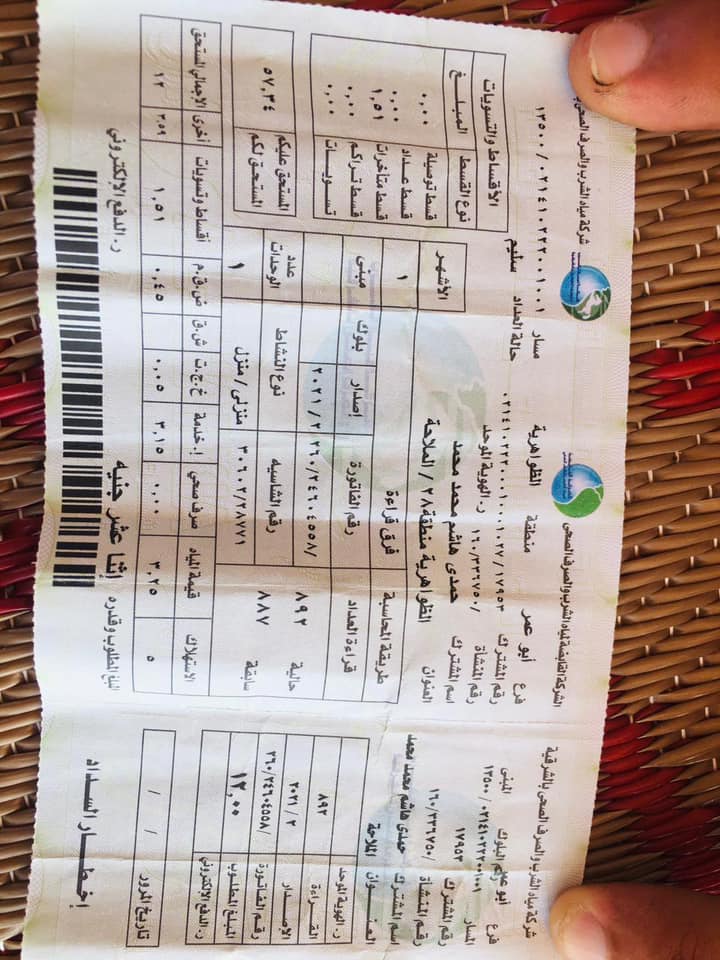 شركة مياه الشرب والصرف الصحى بالشرقية
فرع أبو عمر البلوك المبنى
المسار ١٣٥٠٠/٠٢١٤١٠٢٢٢٠٠١٠٠١
رقم المشترك ١٧٩٥٣
رقم المنشأة /١٦٠/٣٣٦٧٥٠
اسم المشترك حمدى هاشم محمد محمد
العنوان الملاحة
ر. الهوية الموحد
القراءة ٨٩٢
الإصدار ٢٠٢١/٢
رقم الفاتورة /٢٦٠/٢٤٦٠٤٥٥٨
المبلغ المطلوب ١٢,٠٠
ر. الدفع الإلكتروني
تاريخ المرور / /
إخطار السداد
الشركة القابضة لمياه الشرب والصرف الصحى
شركة مياه الشرب والصرف الصحى
فرع أبو عمر منطقة الظواهرية مسار ١٣٥٠٠/٠٢١٤١٠٢٢٢٠٠١٠٠١
رقم المشترك ١٧٩٥٣
حالة العداد سليم
رقم المنشأة /١٦٠/٣٣٦٧٥٠ ر. الهوية الموحد
اسم المشترك حمدى هاشم محمد محمد
العنوان الظواهرية منطقة٢٨/الملاحة
طريقة المحاسبة فرق قراءة الأشهر ١
قراءة العداد رقم الفاتورة إصدار بلوك مبنى
حالية ٨٩٢ /٢٦٠/٢٤٦٠٤٥٥٨ ٢٠٢١/٢
سابقة ٨٨٧ رقم الشاسيه نوع النشاط عدد الوحدات
٣٠٦٠٢/٢٨٧٧١ منزلى/منزل ١
الأقساط والتسويات
نوع القسط المبلغ
قسط توصيلة ٠,٠٠
قسط عداد ٠,٠٠
قسط متأخرات ١,٥١
قسط تراكم ٠,٠٠
تسويات ٠,٠٠
المستحق عليكم ٥٧,٣٤
المستحق لكم
الاستهلاك قيمة المياه صرف صحي إ. خدمة خ.ج.ت ش.ق ض.ق.م أقساط وتسويات أخرى الإجمالي المستحق
٥ ٣,٢٥ ٠,٠٠ ٣,١٥ ٠,٠٥ ٠,٤٥ ١,٥١ ٣,٥٩ ١٢
المبلغ المطلوب وقدره إثنا عشر جنيه ر. الدفع الإلكتروني